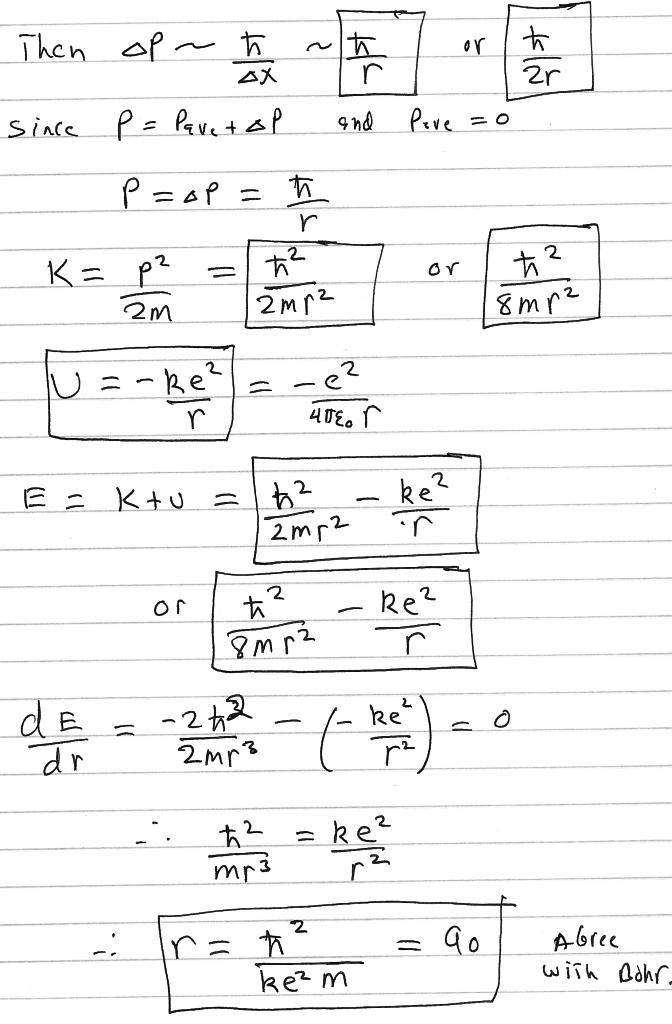 Then ΔP ~ ħ/Δx ~ ħ/r or ħ/2r
since P = Pave + ΔP and Pave = 0
P = ΔP = ħ/r
K = P²/2m = ħ²/2mr² or ħ²/8mr²
U = -ke²/r = -e²/4πε₀r
E = K+U = ħ²/2mr² - ke²/r
or ħ²/8mr² - ke²/r
dE/dr = -2ħ²/2mr³ - (-ke²/r²) = 0
∴ ħ²/mr³ = ke²/r²
∴ r = ħ²/ke²m = a₀ Agree
with Bohr.